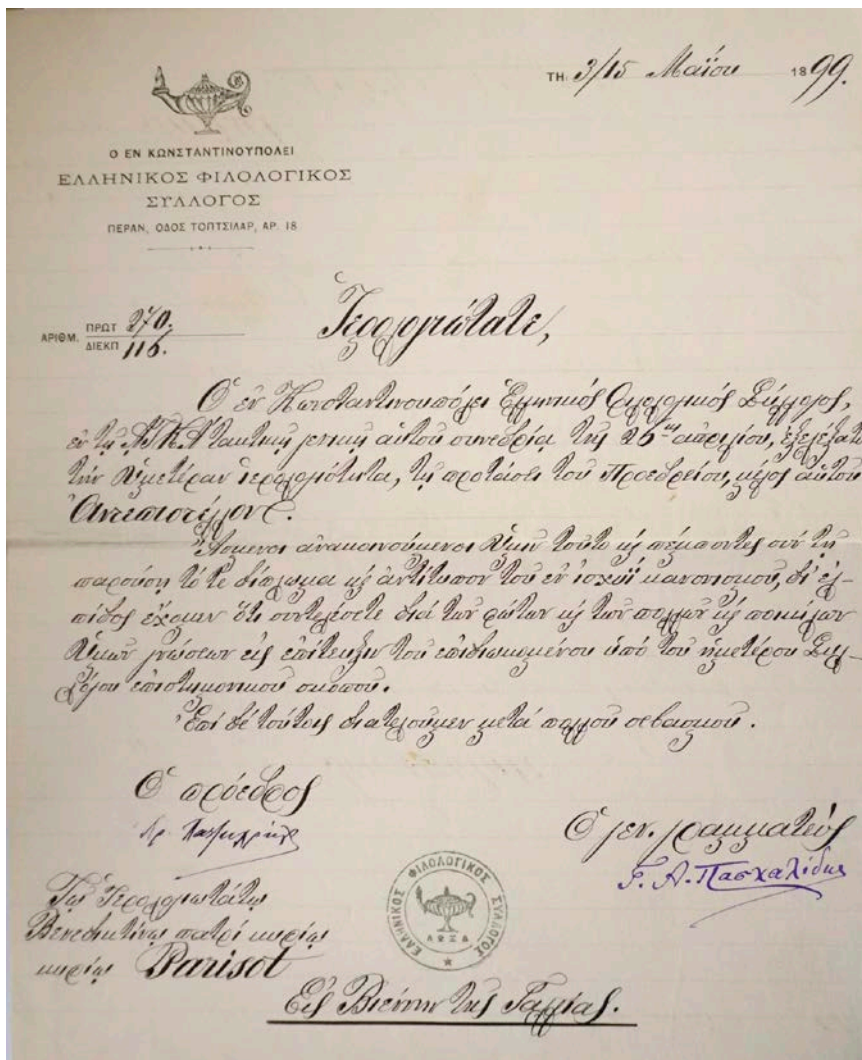 ΤΗι 3/15 Μαΐου 1899.
Ο ΕΝ ΚΩΝΣΤΑΝΤΙΝΟΥΠΟΛΕΙ
ΕΛΛΗΝΙΚΟΣ ΦΙΛΟΛΟΓΙΚΟΣ
ΣΥΛΛΟΓΟΣ
ΠΕΡΑΝ, ΟΔΟΣ ΤΟΠΤΣΙΛΑΡ, ΑΡ. 18
ΑΡΙΘΜ. ΠΡΩΤ 270.
ΔΙΕΚΠ 116.
Ἱερολογιώτατε,
Ὁ ἐν Κωνσταντινουπόλει Ἑλληνικὸς Φιλολογικὸς Σύλλογος,
ἐν τῇ τακτικῇ γενικῇ αὐτοῦ συνεδρίᾳ τῆς 26ης ἀπριλίου, ἐξελέξατο
τὴν Ὑμετέραν ἱερολογιότητα, τῇ προτάσει τοῦ Προεδρείου, μέλος αὐτοῦ
Ἀντεπιστέλλον.
Ἄσμενοι ἀνακοινούμενοι Ὑμῖν τοῦτο κ πέμποντες σὺν τῇ
παρούσῃ τό τε δίπλωμα κ ἀντίτυπον τοῦ ἐν ἰσχύϊ κανονισμοῦ, δι' ἐλ-
πίδος ἔχομεν ὅτι συντελέσετε διὰ τῶν φώτων κ τῶν πολλῶν κ ποικίλων
Ὑμῶν γνώσεων εἰς ἐπίτευξιν τοῦ ἐπιδιωκομένου ὑπὸ τοῦ ἡμετέρου Συλ-
λόγου ἐπιστημονικοῦ σκοποῦ.
Ἐπὶ δὲ τούτοις διατελοῦμεν μετὰ πολλοῦ σεβασμοῦ.
Ὁ πρόεδρος
Ὁ γεν. γραμματεὺς
Γ. Α. Πασχαλίδης
Τῷ Ἱερολογιωτάτῳ
Βενεδικτίνῳ πατρὶ κυρίῳ
κυρίῳ Parisot
ΕΛΛΗΝΙΚΟΣ ΦΙΛΟΛΟΓΙΚΟΣ ΣΥΛΛΟΓΟΣ
ΑΩΞΑ
Εἰς Βιέννην τῆς Γαλλίας.